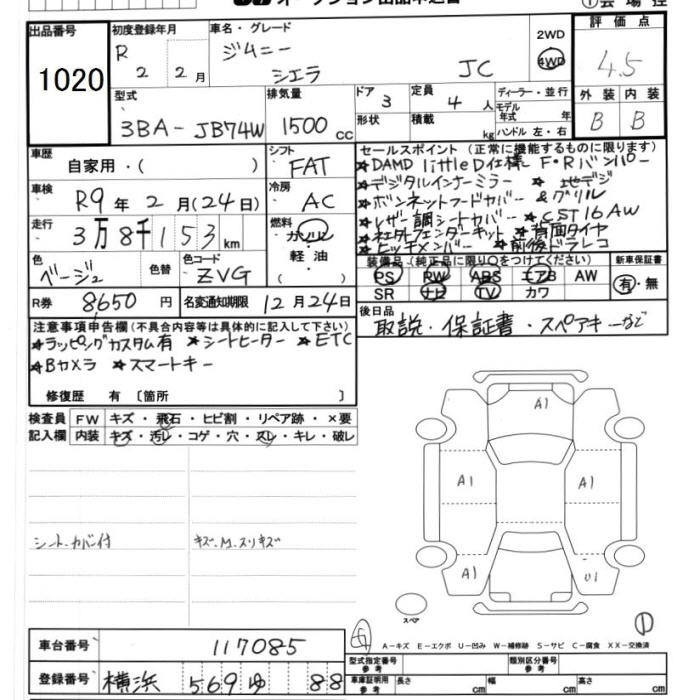 出品番号 1020
初度登録年月 R 2 2月
車名・グレード ジムニー シエラ JC
2WD 4WD
評価点 4.5
外装 B 内装 B
型式 3BA-JB74W
排気量 1500 cc
ドア 3 定員 4人
形状 積載 kg
ディーラー・並行
モデル年式 年
ハンドル 左・右
車歴 自家用・( )
シフト FAT
車検 R9年2月(24日)
冷房 AC
走行 3万8千153km
燃料 ガソリン 軽油 ・( )
色 ベージュ 色替 色コード ZVG
R券 8,650円 名変通知期限 12月24日
セールスポイント(正常に機能するものに限ります)
★DAMD little D仕様 F・Rバンパー
★デジタルインナーミラー ★地デジ
★ボンネットフードカバー &グリル
★レザー調シートカバー ★CST 16AW
フェンダーキット ★背面タイヤ
★ヒッチメンバー ★前後ドラレコ
装備品(純正品に限り○をつけてください)
PS PW ABS エアB AW
SR ナビ TV カワ
新車保証書 有・無
後日品 取説・保証書・スペアキーなど
注意事項申告欄(不具合内容等は具体的に記入して下さい)
★ラッピングカスタム有 ★シートヒーター ★ETC
★Bカメラ ★スマートキー
修復歴 有 [箇所 ]
検査員記入欄 FW キズ・飛石・ヒビ割・リペア跡・×要
内装 キズ・汚レ・コゲ・穴・スレ・キレ・破レ
シートカバー付 キズ.M.スリキズ
A1
A1 A1
A1 U1
スペア
A-キズ E-エクボ U-凹み W-補修跡 S-サビ C-腐食 XX-交換済
車台番号 117085
登録番号 横浜 569 ゆ 88
型式指定番号 参考 類別区分番号 参考
車庫証明用 参考 長さ cm 幅 cm 高さ cm